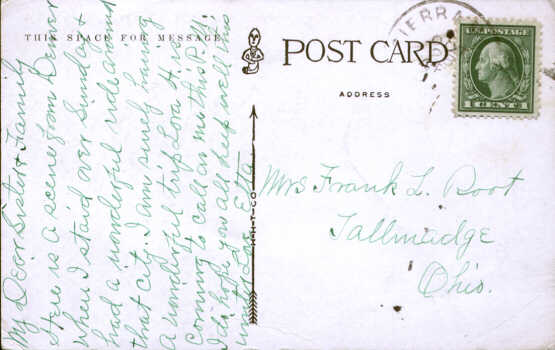 THIS SPACE FOR MESSAGE
My Dear Sister & Family
Here is a scene from Denver
when I staid over Sunday &
had a wonderful ride around
that city. I am surely having
a wonderful trip. Lora & all
coming to call on me this P.M.
I do hope you all keep well. this
Love Etta
POST CARD
ADDRESS
Mrs Frank L. Root
Tallmadge
Ohio.
U.S. POSTAGE
1 CENT 1